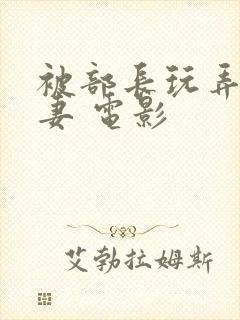 被部長玩弄
妻 電影
艾勃拉姆斯